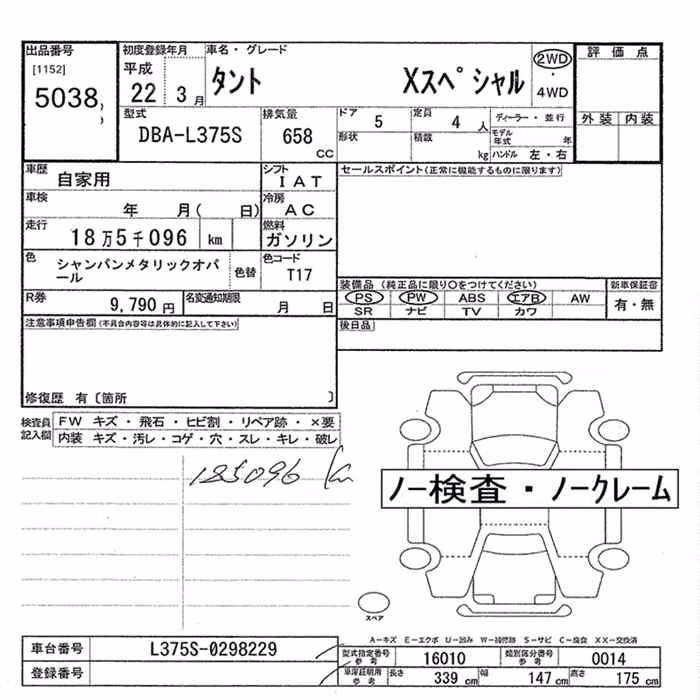 出品番号 初度登録年月 車名・グレード 評価点
[1152] 平成 2WD
5038 22 3月 タント Xスペシャル ・
4WD
型式 排気量 ドア 5 定員 4人 ディーラー・並行 外装 内装
DBA-L375S 658 cc 形状 積載 kg モデル年式 年
ハンドル 左・右
車歴 自家用 シフト IAT セールスポイント(正常に機能するものに限ります)
車検 年 月( 日) 冷房 AC
走行 18万5千096 km 燃料 ガソリン
色 シャンパンメタリックオパール 色替 色コード T17
装備品(純正品に限り○をつけてください) 新車保証書
R券 9,790円 名変通知期限 月 日 PS PW ABS エアB AW 有・無
SR ナビ TV カワ
注意事項申告欄(不具合内容等は具体的に記入して下さい) 後日品
修復歴 有〔箇所 〕
検査員記入欄 FW キズ・飛石・ヒビ割・リペア跡・×要
内装 キズ・汚レ・コゲ・穴・スレ・キレ・破レ
185096 km
ノー検査・ノークレーム
スペア
A-キズ E-エクボ U-凹み W-補修跡 S-サビ C-腐食 XX-交換済
車台番号 L375S-0298229 型式指定番号 参考 16010 類別区分番号 参考 0014
登録番号 車庫証明用 参考 長さ 339 cm 幅 147 cm 高さ 175 cm